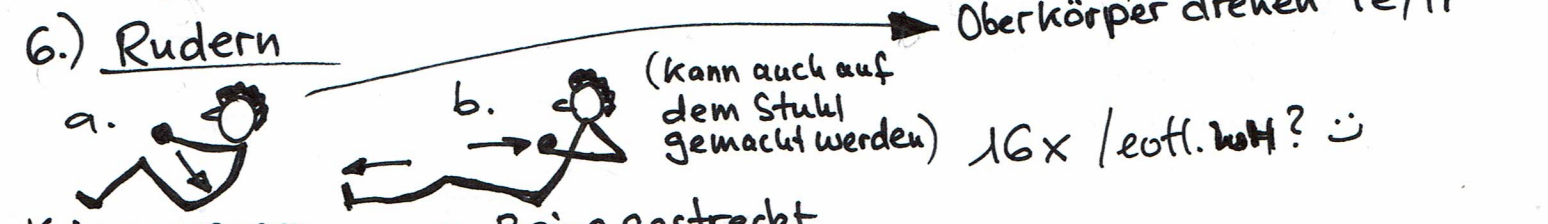 6.) Rudern
Oberkörper drehen re/li
a.
b.
(kann auch auf
dem Stuhl
gemacht werden)
16x / evtl. ? :)
Beine gestreckt